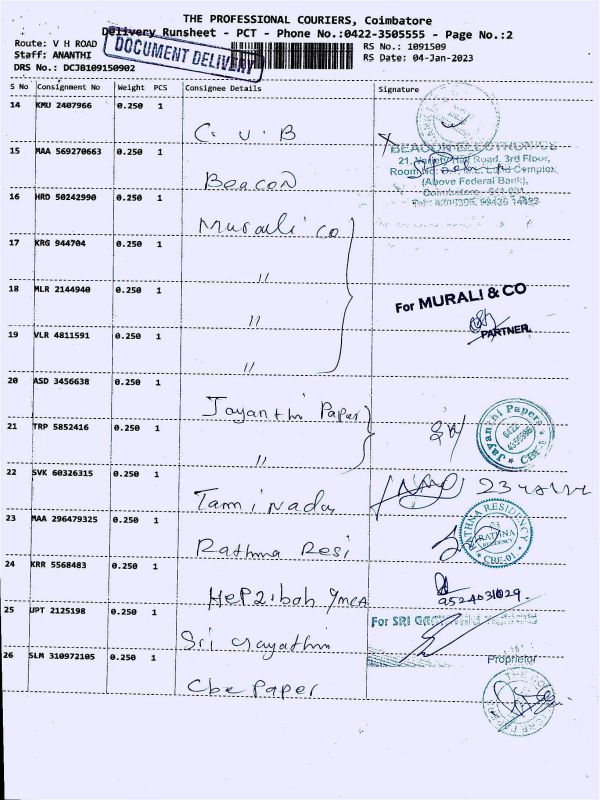 THE PROFESSIONAL COURIERS, Coimbatore
Delivery Runsheet - PCT - Phone No.:0422-3505555 - Page No.:2
Route: V H ROAD
Staff: ANANTHI
DRS No.: DCJB109150902
DOCUMENT DELIVERY
RS No.: 1091509
RS Date: 04-Jan-2023
S No Consignment No Weight PCS Consignee Details Signature
14 KMU 2407966 0.250 1 C.U.B
15 MAA 569270663 0.250 1 Beacon
BEACON ELECTRONICS
21, Variety Hall Road, 3rd Floor,
(Above Federal Bank),
16 HRD 50242990 0.250 1 Murali co
17 KRG 944704 0.250 1 "
18 MLR 2144940 0.250 1 "
For MURALI & CO
PARTNER.
19 VLR 4811591 0.250 1 "
20 ASD 3456638 0.250 1 Jayanthi Paper
21 TRP 5852416 0.250 1 "
Jayanthi Papers
CBE-1
22 SVK 60326315 0.250 1 Tamilnadu
23 MAA 296479325 0.250 1 Rathna Resi
RATHNA RESIDENCY
RATHNA
RESIDENCY
CBE-01
24 KRR 5568483 0.250 1 Hepzibah ymca
9524031029
25 UPT 2125198 0.250 1 Sri Gayathri
For SRI
Proprietor
26 SLM 310972105 0.250 1 Cbe Paper